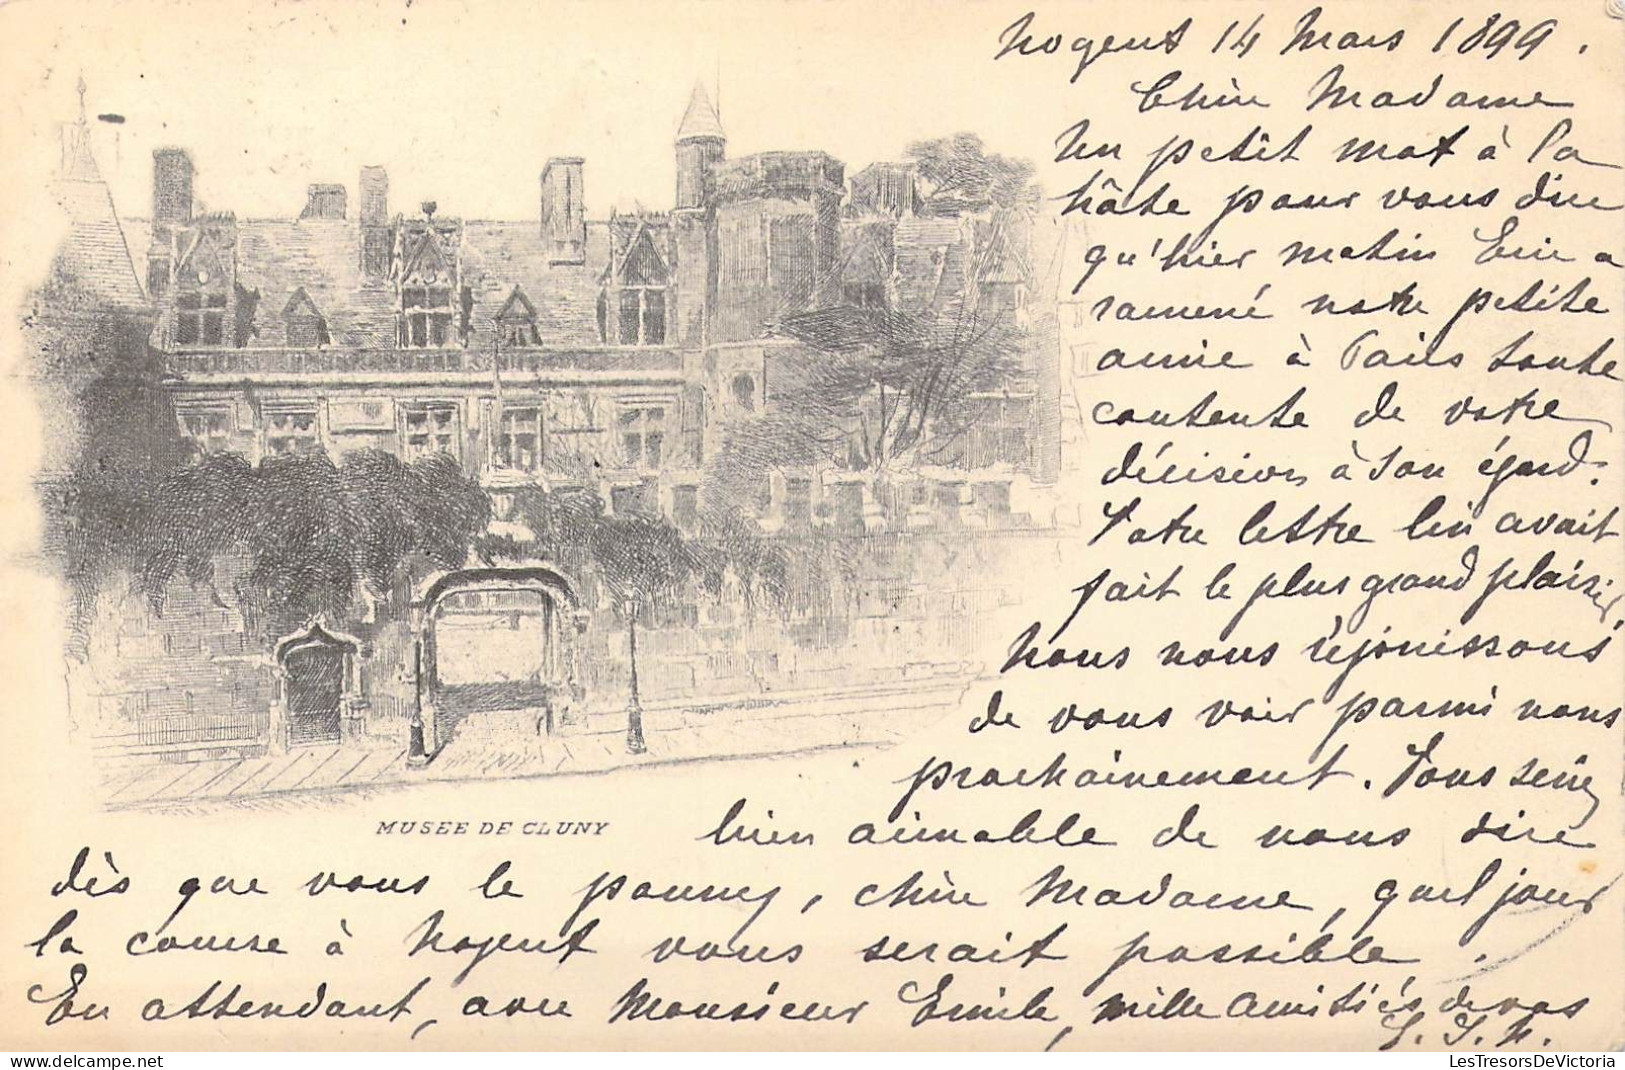 Nogent 14 Mars 1899.
Chère Madame
Un petit mot à la
hâte pour vous dire
qu'hier matin Eric a
ramené notre petite
amie à Paris toute
contente de votre
décision à son égard.
Votre lettre lui avait
fait le plus grand plaisir
Nous nous réjouissons
de vous voir parmi nous
prochainement. Vous seriez
bien aimable de nous dire
MUSEE DE CLUNY
dès que vous le pourrez, chère Madame, quel jour
la course à Nogent vous serait possible.
En attendant, avec Monsieur Emile, mille amitiés de vos
LesTresorsDeVictoria